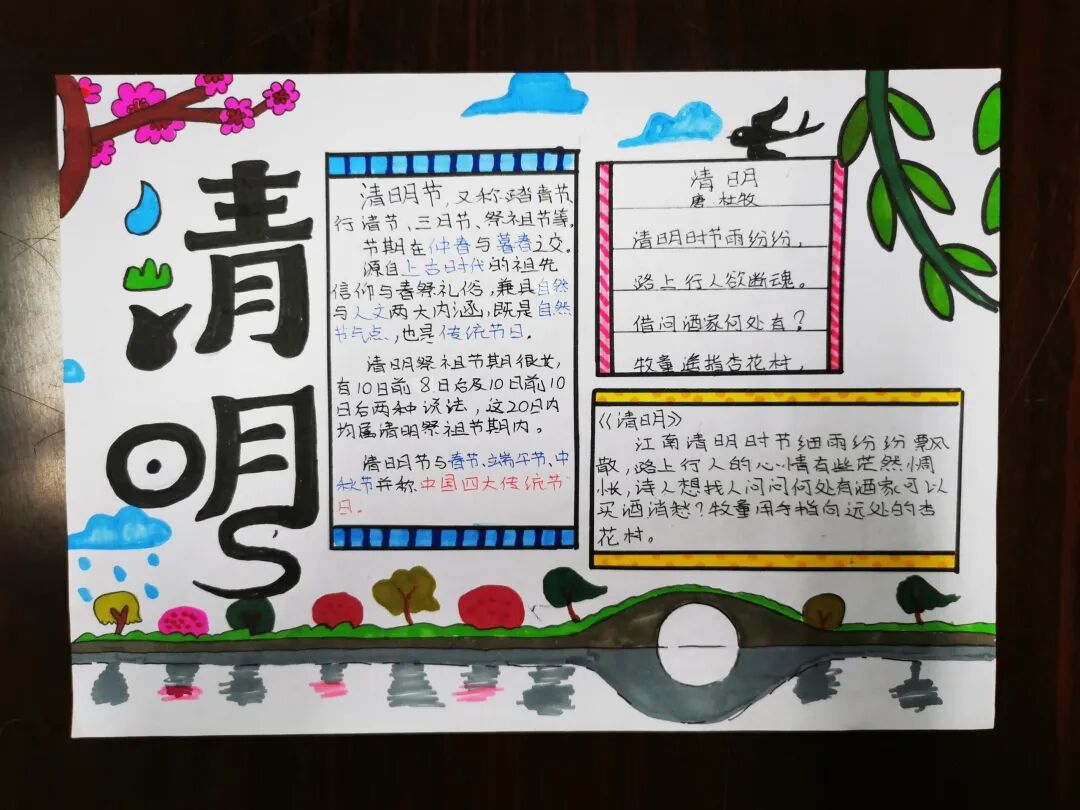 清明
清明节,又称踏青节
行清节、三月节、祭祖节等,
节期在仲春与暮春之交。
源自上古时代的祖先
信仰与春祭礼俗,兼具自然
与人文两大内涵,既是自然
节气点,也是传统节日。
清明祭祖节期很长,
有10日前8日后及10日前10
日后两种说法,这20日内
均属清明祭祖节期内。
清明节与春节、端午节、中
秋节并称中国四大传统节
日。
清明
唐 杜牧
清明时节雨纷纷,
路上行人欲断魂。
借问酒家何处有?
牧童遥指杏花村,
《清明》
江南清明时节细雨纷纷飘
散,路上行人的心情有些茫然惆
怅,诗人想找人问问何处有酒家可以
买酒消愁?牧童用手指向远处的杏
花村。